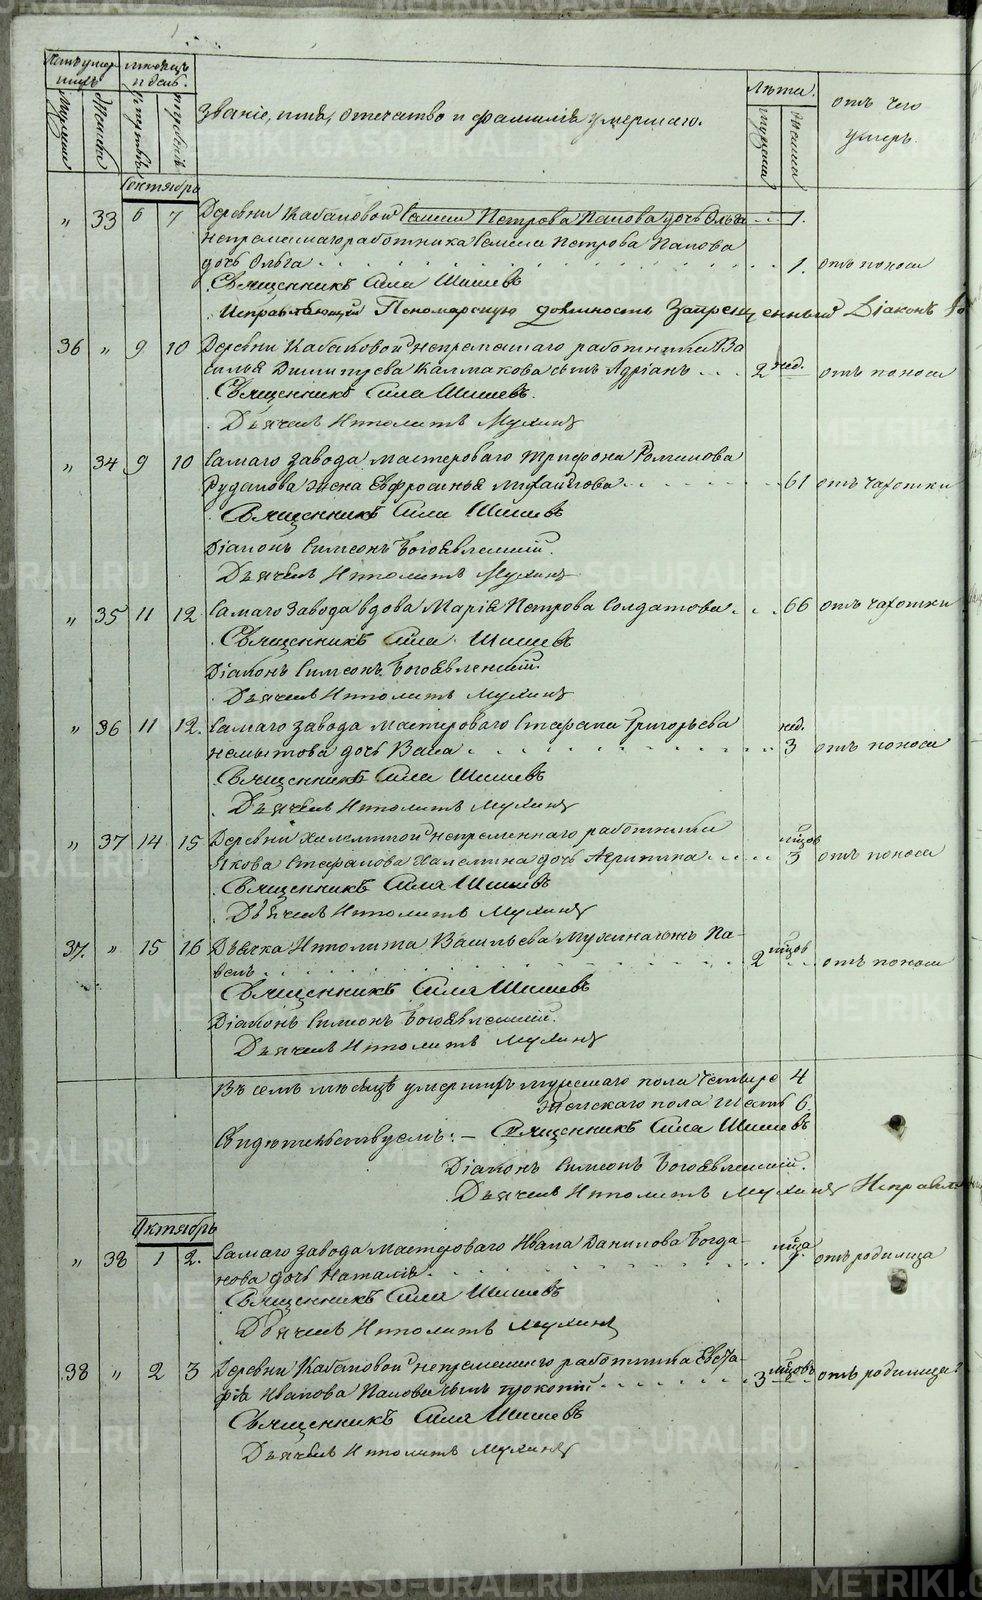 Счетъ умершихъ
мѣсяцъ и день
Лѣта
Мужеска
Женска
смерти
погребенія
Званіе, имя, отечество и фамилія умершаго.
мужеска
женска
отъ чего умеръ.
Сентябрь
" 33 6 7 Деревни Кабановой Самсы Петрова Панова дочь Ольга ... 1.
непременнаго работника Петрова Панова
дочь Ольга 1. отъ поноса
Священникъ Сила Шишевъ
Исправляющій Пономарскую должность Запрещенный Діаконъ
36 " 9 10 Деревни Кабановой непременнаго работника Ва
силья Димитрева Калмакова сынъ Адріанъ 2 нед. отъ поноса
Священникъ Сила Шишевъ.
Дьячекъ Ипполитъ Мухинъ
" 34 9 10 Самаго завода мастероваго Трифона Романова
Рудакова жена Евфросинья Михайлова 61 отъ чахотки
Священникъ Сила Шишевъ
Діаконъ Симеонъ Богоявленскій.
Дьячекъ Ипполитъ Мухинъ
" 35 11 12 Самаго завода вдова Марія Петрова Солдатова 66 отъ чахотки
Священникъ Сила Шишевъ
Діаконъ Симеонъ Богоявленскій.
Дьячекъ Ипполитъ Мухинъ
" 36 11 12. Самаго завода мастероваго Стефана Григорьева
немытова дочь нед. 3 отъ поноса
Священникъ Сила Шишевъ
Дьячекъ Ипполитъ Мухинъ
" 37 14 15 Деревни Халеминой непременнаго работника
Якова Стефанова Халемина дочь Агрипина мѣцов 3 отъ поноса
Священникъ Сила Шишевъ
Дьячекъ Ипполитъ Мухинъ
37. " 15 16 Дьячка Ипполита Васильева Мухина сынъ Па-
велъ 2 мѣцов отъ поноса
Священникъ Сила Шишевъ
Діаконъ Симеонъ Богоявленскій.
Дьячекъ Ипполитъ Мухинъ
Въ семъ мѣсяцѣ умершихъ мужескаго пола четыре 4
женскаго пола шесть 6.
Свидѣтельствуемъ: – Священникъ Сила Шишевъ
Діаконъ Симеонъ Богоявленскій.
Дьячекъ Ипполитъ Мухинъ
Октябрь
" 38 1 2. Самаго завода мастероваго Ивана Данилова Богда-
нова дочь Наталія мѣца 1. отъ родимца
Священникъ Сила Шишевъ
Дьячекъ Ипполитъ Мухинъ
38 " 2 3 Деревни Кабановой непременнаго работника Евста-
фія Иванова Панова сынъ Прокопій 3 мѣцовъ отъ родимца
Священникъ Сила Шишевъ
Дьячекъ Ипполитъ Мухинъ
METRIKI.GASO-URAL.RU